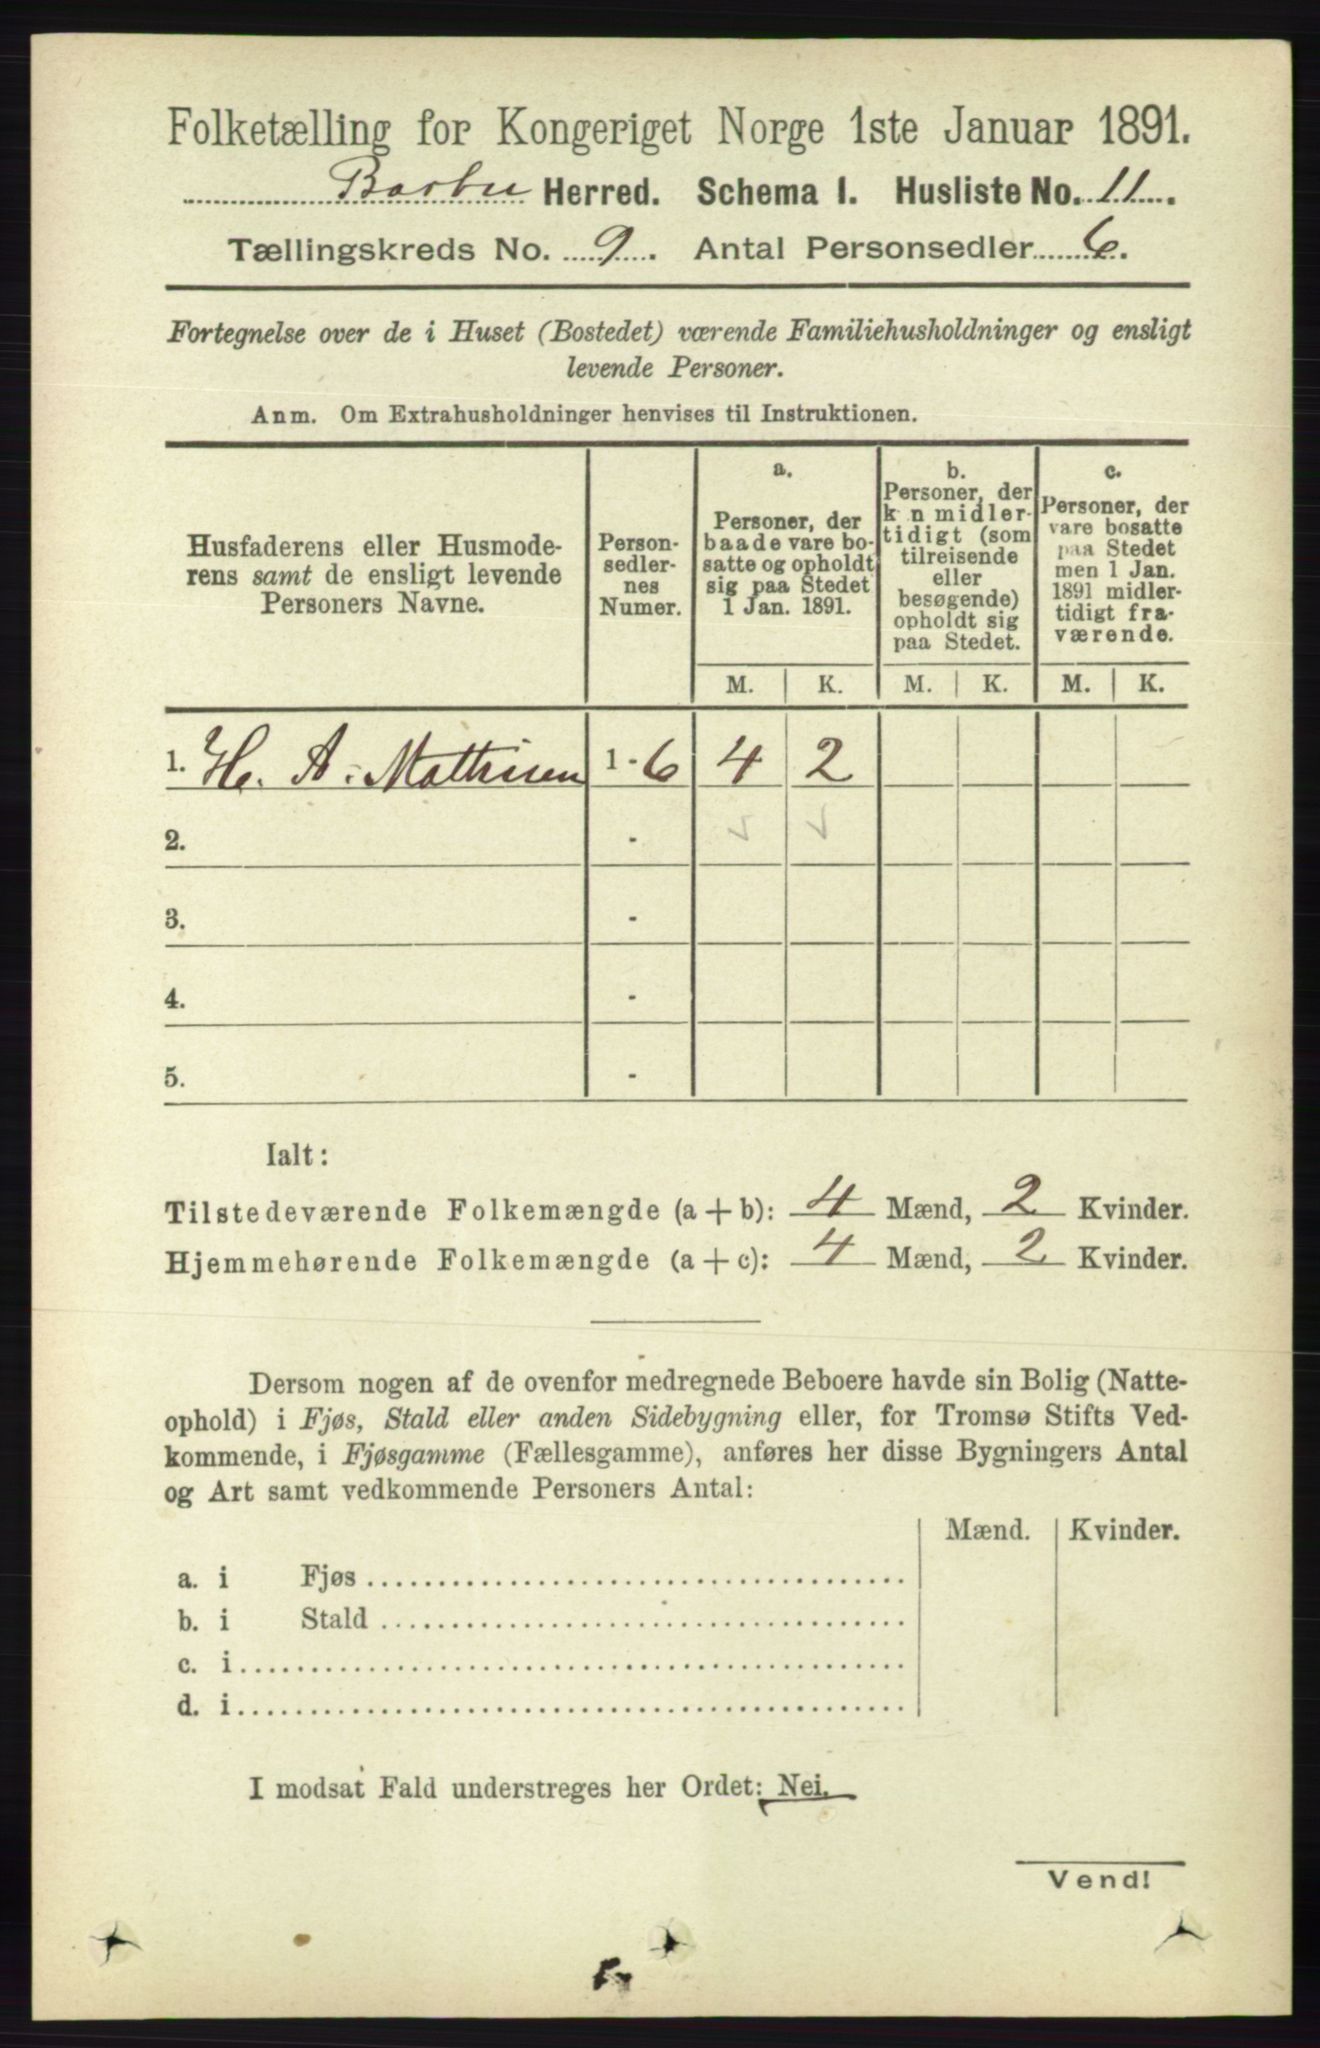 Folketælling for Kongeriget Norge 1ste Januar 1891.
Barbu Herred. Schema I. Husliste No. 11.
Tællingskreds No. 9. Antal Personsedler 6.
Fortegnelse over de i Huset (Bostedet) værende Familiehusholdninger og ensligt
levende Personer.
Anm. Om Extrahusholdninger henvises til Instruktionen.
Husfaderens eller Husmode-
rens samt de ensligt levende
Personers Navne.
Person-
sedler-
nes
Numer.
a.
Personer, der
baade vare bo-
satte og opholdt
sig paa Stedet
1 Jan. 1891.
b.
Personer, der
k n midler-
tidigt (som
tilreisende
eller
besøgende)
opholdt sig
paa Stedet.
c.
Personer, der
vare bosatte
paa Stedet
men 1 Jan.
1891 midler-
tidigt fra-
værende.
M. K. M. K. M. K.
1. H. A. Mathisen 1 - 6 4 2
2. -
3. -
4. -
5. -
Ialt:
Tilstedeværende Folkemængde (a + b): 4 Mænd, 2 Kvinder.
Hjemmehørende Folkemængde (a + c): 4 Mænd, 2 Kvinder.
Dersom nogen af de ovenfor medregnede Beboere havde sin Bolig (Natte-
ophold) i Fjøs, Stald eller anden Sidebygning eller, for Tromsø Stifts Ved-
kommende, i Fjøsgamme (Fællesgamme), anføres her disse Bygningers Antal
og Art samt vedkommende Personers Antal:
Mænd. Kvinder.
a. i Fjøs
b. i Stald
c. i
d. i
I modsat Fald understreges her Ordet: Nei.
Vend!